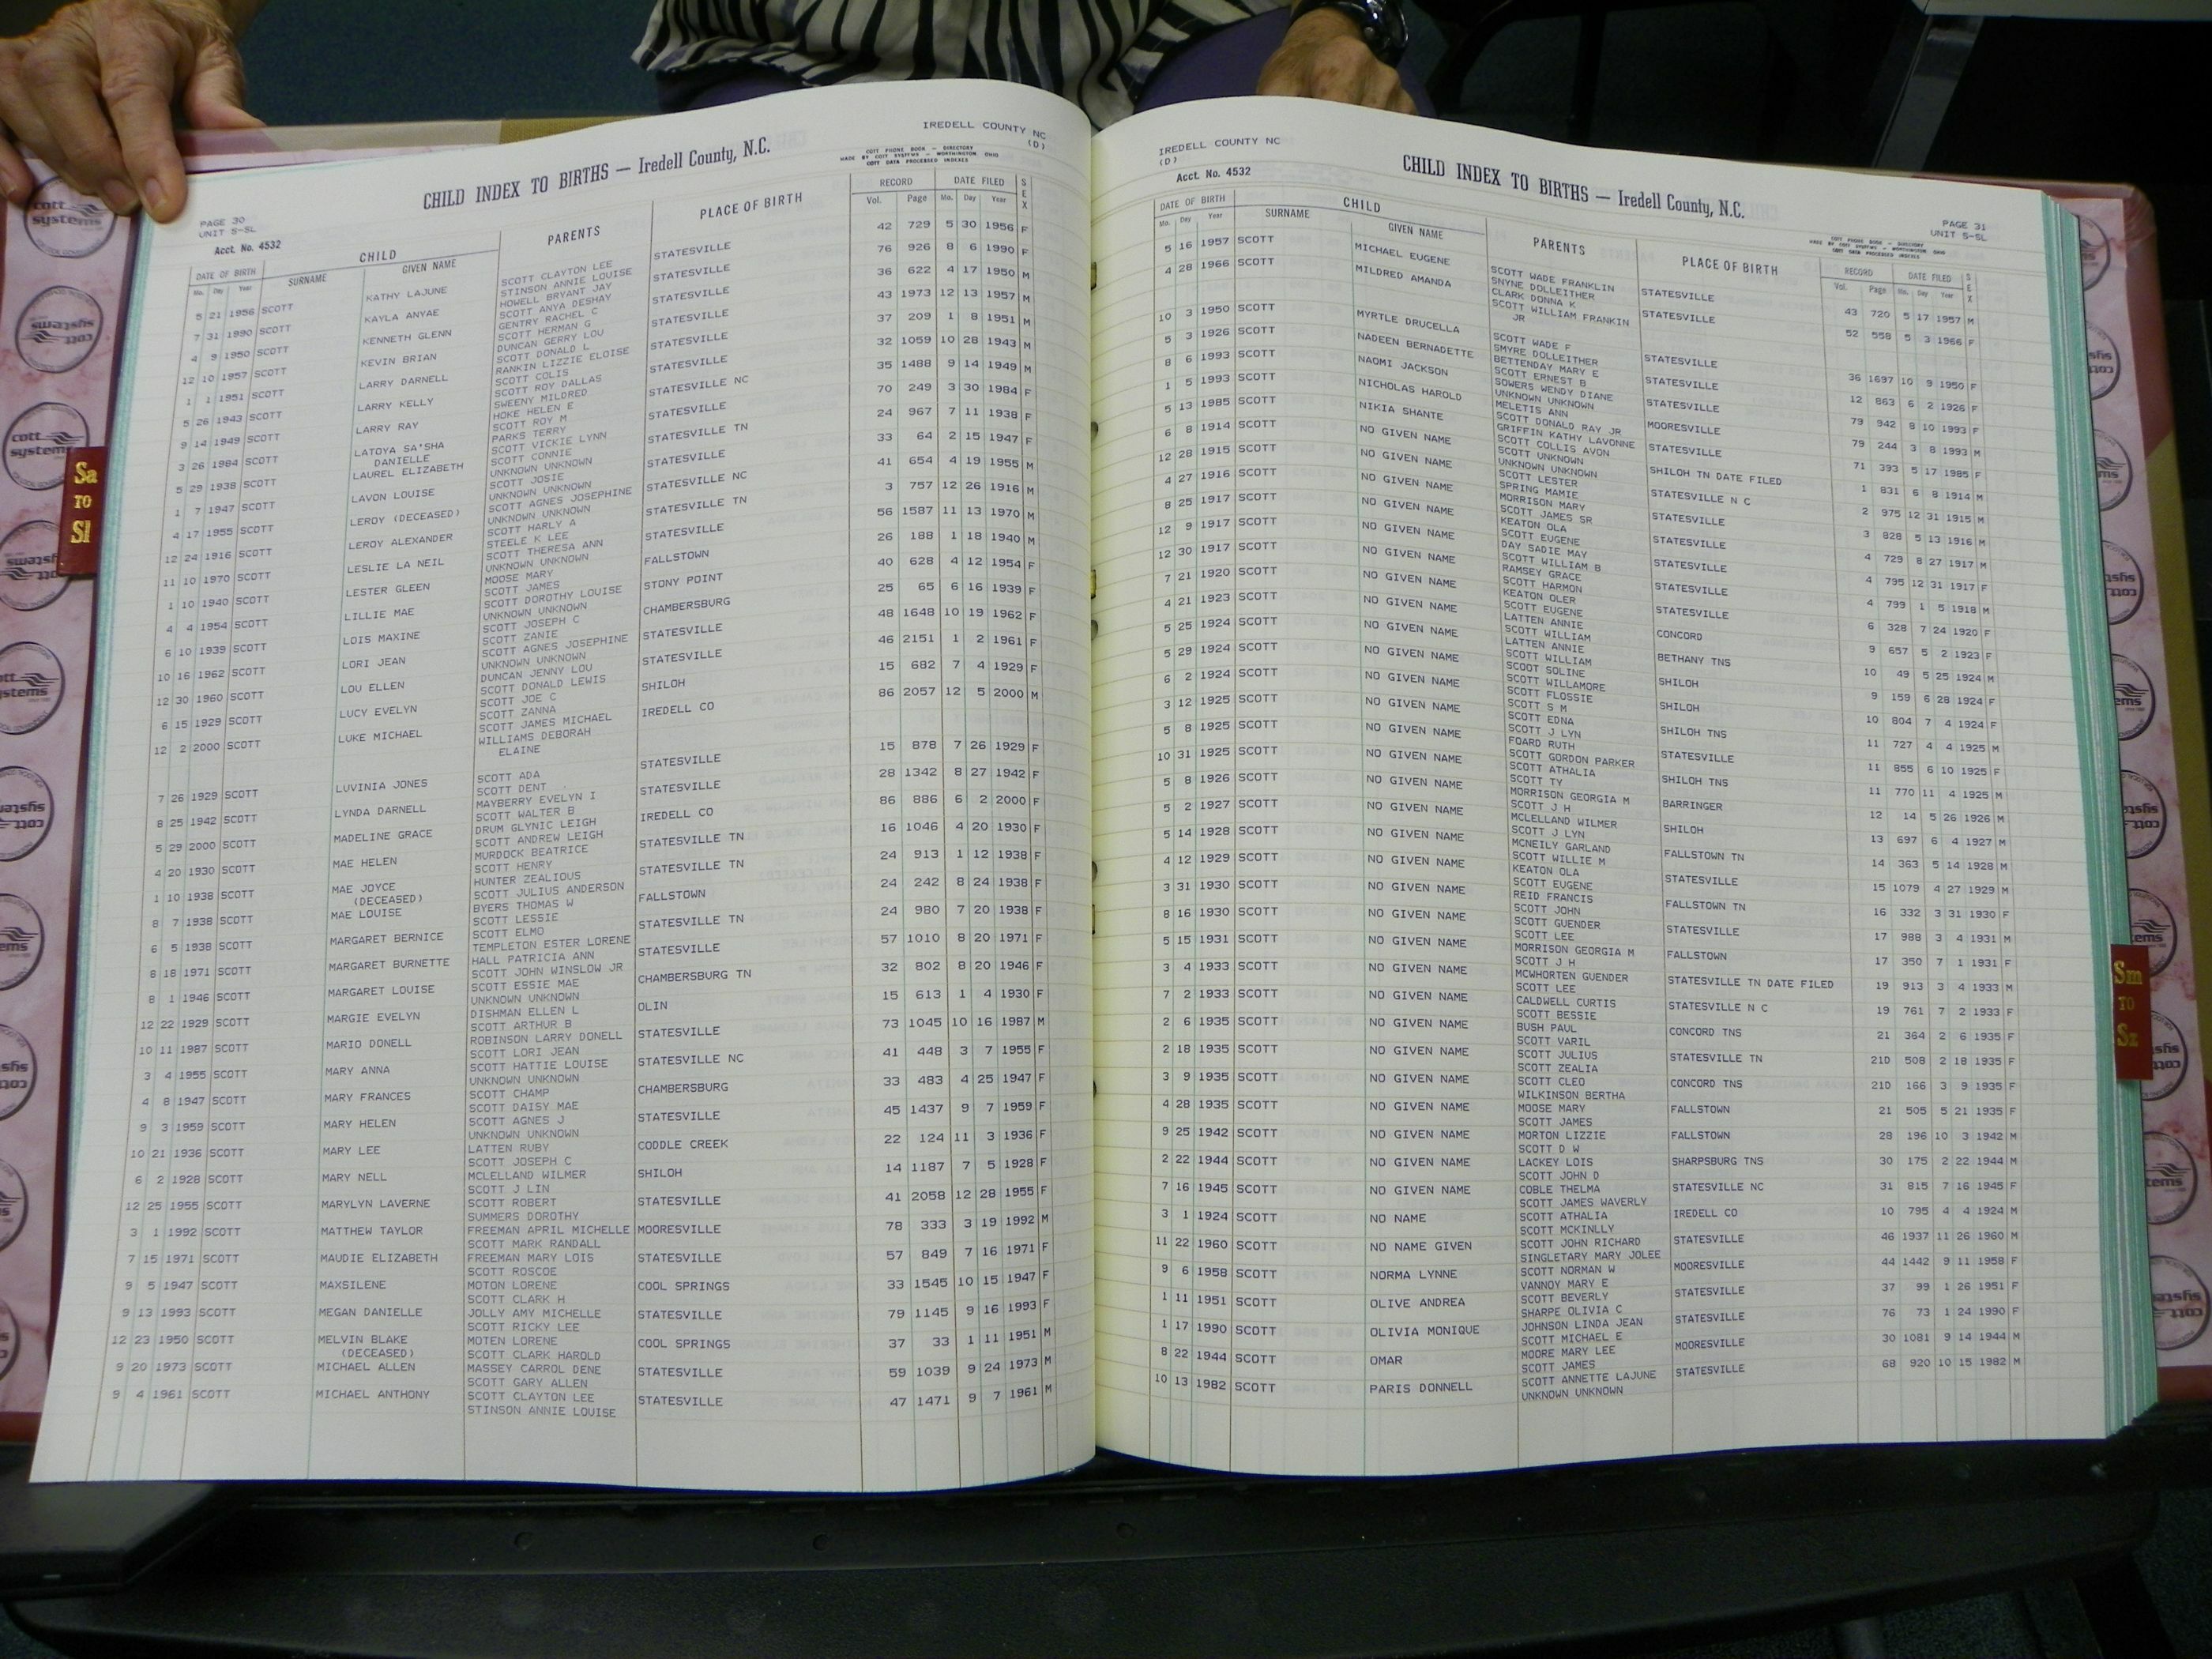 IREDELL COUNTY NC
(D)
COTT PHONE BOOK — DIRECTORY
MADE BY COTT SYSTEMS — WORTHINGTON OHIO
COTT DATA PROCESSED INDEXES
CHILD INDEX TO BIRTHS — Iredell County, N.C.
PAGE 30
UNIT S-SL
Acct. No. 4532
DATE OF BIRTH CHILD PARENTS PLACE OF BIRTH RECORD DATE FILED SEX
Mo. Day Year SURNAME GIVEN NAME Vol. Page Mo. Day Year
5 21 1956 SCOTT KATHY LAJUNE SCOTT CLAYTON LEE STATESVILLE 42 729 5 30 1956 F
STINSON ANNIE LOUISE
7 31 1990 SCOTT KAYLA ANYAE HOWELL BRYANT JAY STATESVILLE 76 926 8 6 1990 F
SCOTT ANYA DESHAY
4 9 1950 SCOTT KENNETH GLENN GENTRY RACHEL C STATESVILLE 36 622 4 17 1950 M
SCOTT HERMAN G
12 10 1957 SCOTT KEVIN BRIAN DUNCAN GERRY LOU STATESVILLE 43 1973 12 13 1957 M
SCOTT DONALD L
1 1 1951 SCOTT LARRY DARNELL RANKIN LIZZIE ELOISE STATESVILLE 37 209 1 8 1951 M
SCOTT COLIS
5 26 1943 SCOTT LARRY KELLY SCOTT ROY DALLAS STATESVILLE 32 1059 10 28 1943 M
SWEENY MILDRED
9 14 1949 SCOTT LARRY RAY HOKE HELEN E STATESVILLE NC 35 1488 9 14 1949 M
SCOTT ROY M
3 26 1984 SCOTT LATOYA SA'SHA PARKS TERRY STATESVILLE 70 249 3 30 1984 F
DANIELLE SCOTT VICKIE LYNN
5 29 1938 SCOTT LAUREL ELIZABETH SCOTT CONNIE STATESVILLE TN 24 967 7 11 1938 F
UNKNOWN UNKNOWN
1 7 1947 SCOTT LAVON LOUISE SCOTT JOSIE STATESVILLE 33 64 2 15 1947 F
UNKNOWN UNKNOWN
4 17 1955 SCOTT LEROY (DECEASED) SCOTT AGNES JOSEPHINE STATESVILLE NC 41 654 4 19 1955 M
UNKNOWN UNKNOWN
12 24 1916 SCOTT LEROY ALEXANDER SCOTT HARLY A STATESVILLE TN 3 757 12 26 1916 M
STEELE K LEE
11 10 1970 SCOTT LESLIE LA NEIL SCOTT THERESA ANN STATESVILLE 56 1587 11 13 1970 M
UNKNOWN UNKNOWN
1 10 1940 SCOTT LESTER GLEEN MOOSE MARY FALLSTOWN 26 188 1 18 1940 M
SCOTT JAMES
4 4 1954 SCOTT LILLIE MAE SCOTT DOROTHY LOUISE STONY POINT 40 628 4 12 1954 F
UNKNOWN UNKNOWN
6 10 1939 SCOTT LOIS MAXINE SCOTT JOSEPH C CHAMBERSBURG 25 65 6 16 1939 F
SCOTT ZANIE
10 16 1962 SCOTT LORI JEAN SCOTT AGNES JOSEPHINE STATESVILLE 48 1648 10 19 1962 F
UNKNOWN UNKNOWN
12 30 1960 SCOTT LOU ELLEN DUNCAN JENNY LOU STATESVILLE 46 2151 1 2 1961 F
SCOTT DONALD LEWIS
6 15 1929 SCOTT LUCY EVELYN SCOTT JOE C SHILOH 15 682 7 4 1929 F
SCOTT ZANNA
12 2 2000 SCOTT LUKE MICHAEL SCOTT JAMES MICHAEL IREDELL CO 86 2057 12 5 2000 M
WILLIAMS DEBORAH
ELAINE
7 26 1929 SCOTT LUVINIA JONES SCOTT ADA STATESVILLE 15 878 7 26 1929 F
SCOTT DENT
8 25 1942 SCOTT LYNDA DARNELL MAYBERRY EVELYN I STATESVILLE 28 1342 8 27 1942 F
SCOTT WALTER B
5 29 2000 SCOTT MADELINE GRACE DRUM GLYNIC LEIGH IREDELL CO 86 886 6 2 2000 F
SCOTT ANDREW LEIGH
4 20 1930 SCOTT MAE HELEN MURDOCK BEATRICE STATESVILLE TN 16 1046 4 20 1930 F
SCOTT HENRY
1 10 1938 SCOTT MAE JOYCE HUNTER ZEALIOUS STATESVILLE TN 24 913 1 12 1938 F
(DECEASED) SCOTT JULIUS ANDERSON
8 7 1938 SCOTT MAE LOUISE BYERS THOMAS W FALLSTOWN 24 242 8 24 1938 F
SCOTT LESSIE
6 5 1938 SCOTT MARGARET BERNICE SCOTT ELMO STATESVILLE TN 24 980 7 20 1938 F
TEMPLETON ESTER LORENE
8 18 1971 SCOTT MARGARET BURNETTE HALL PATRICIA ANN STATESVILLE 57 1010 8 20 1971 F
SCOTT JOHN WINSLOW JR
8 1 1946 SCOTT MARGARET LOUISE SCOTT ESSIE MAE CHAMBERSBURG TN 32 802 8 20 1946 F
UNKNOWN UNKNOWN
12 22 1929 SCOTT MARGIE EVELYN DISHMAN ELLEN L OLIN 15 613 1 4 1930 F
SCOTT ARTHUR B
10 11 1987 SCOTT MARIO DONELL ROBINSON LARRY DONELL STATESVILLE 73 1045 10 16 1987 M
SCOTT LORI JEAN
3 4 1955 SCOTT MARY ANNA SCOTT HATTIE LOUISE STATESVILLE NC 41 448 3 7 1955 F
UNKNOWN UNKNOWN
4 8 1947 SCOTT MARY FRANCES SCOTT CHAMP CHAMBERSBURG 33 483 4 25 1947 F
SCOTT DAISY MAE
9 3 1959 SCOTT MARY HELEN SCOTT AGNES J STATESVILLE 45 1437 9 7 1959 F
UNKNOWN UNKNOWN
10 21 1936 SCOTT MARY LEE LATTEN RUBY CODDLE CREEK 22 124 11 3 1936 F
SCOTT JOSEPH C
6 2 1928 SCOTT MARY NELL MCLELLAND WILMER SHILOH 14 1187 7 5 1928 F
SCOTT J LIN
12 25 1955 SCOTT MARYLYN LAVERNE SCOTT ROBERT STATESVILLE 41 2058 12 28 1955 F
SUMMERS DOROTHY
3 1 1992 SCOTT MATTHEW TAYLOR FREEMAN APRIL MICHELLE MOORESVILLE 78 333 3 19 1992 M
SCOTT MARK RANDALL
7 15 1971 SCOTT MAUDIE ELIZABETH FREEMAN MARY LOIS STATESVILLE 57 849 7 16 1971 F
SCOTT ROSCOE
9 5 1947 SCOTT MAXSILENE MOTON LORENE COOL SPRINGS 33 1545 10 15 1947 F
SCOTT CLARK H
9 13 1993 SCOTT MEGAN DANIELLE JOLLY AMY MICHELLE STATESVILLE 79 1145 9 16 1993 F
SCOTT RICKY LEE
12 23 1950 SCOTT MELVIN BLAKE MOTEN LORENE COOL SPRINGS 37 33 1 11 1951 M
(DECEASED) SCOTT CLARK HAROLD
9 20 1973 SCOTT MICHAEL ALLEN MASSEY CARROL DENE STATESVILLE 59 1039 9 24 1973 M
SCOTT GARY ALLEN
9 4 1961 SCOTT MICHAEL ANTHONY SCOTT CLAYTON LEE STATESVILLE 47 1471 9 7 1961 M
STINSON ANNIE LOUISE
IREDELL COUNTY NC
(D)
Acct. No. 4532
CHILD INDEX TO BIRTHS — Iredell County, N.C.
PAGE 31
UNIT S-SL
COTT PHONE BOOK — DIRECTORY
MADE BY COTT SYSTEMS — WORTHINGTON OHIO
COTT DATA PROCESSED INDEXES
DATE OF BIRTH CHILD PARENTS PLACE OF BIRTH RECORD DATE FILED SEX
Mo. Day Year SURNAME GIVEN NAME Vol. Page Mo. Day Year
5 16 1957 SCOTT MICHAEL EUGENE SCOTT WADE FRANKLIN STATESVILLE 43 720 5 17 1957 M
SNYNE DOLLEITHER
4 28 1966 SCOTT MILDRED AMANDA CLARK DONNA K STATESVILLE 52 558 5 3 1966 F
SCOTT WILLIAM FRANKIN
JR
10 3 1950 SCOTT MYRTLE DRUCELLA SCOTT WADE F STATESVILLE 36 1697 10 9 1950 F
SMYRE DOLLEITHER
5 3 1926 SCOTT NADEEN BERNADETTE BETTENDAY MARY E STATESVILLE 12 863 6 2 1926 F
SCOTT ERNEST B
8 6 1993 SCOTT NAOMI JACKSON SOWERS WENDY DIANE STATESVILLE 79 942 8 10 1993 F
UNKNOWN UNKNOWN
1 5 1993 SCOTT NICHOLAS HAROLD MELETIS ANN MOORESVILLE 79 244 3 8 1993 M
SCOTT DONALD RAY JR
5 13 1985 SCOTT NIKIA SHANTE GRIFFIN KATHY LAVONNE STATESVILLE 71 393 5 17 1985 F
SCOTT COLLIS AVON
6 8 1914 SCOTT NO GIVEN NAME SCOTT UNKNOWN SHILOH TN DATE FILED 1 831 6 8 1914 M
UNKNOWN UNKNOWN
12 28 1915 SCOTT NO GIVEN NAME SCOTT LESTER STATESVILLE N C 2 975 12 31 1915 M
SPRING MAMIE
4 27 1916 SCOTT NO GIVEN NAME MORRISON MARY STATESVILLE 3 828 5 13 1916 M
SCOTT JAMES SR
8 25 1917 SCOTT NO GIVEN NAME KEATON OLA STATESVILLE 4 729 8 27 1917 M
SCOTT EUGENE
12 9 1917 SCOTT NO GIVEN NAME DAY SADIE MAY STATESVILLE 4 795 12 31 1917 F
SCOTT WILLIAM B
12 30 1917 SCOTT NO GIVEN NAME RAMSEY GRACE STATESVILLE 4 799 1 5 1918 M
SCOTT HARMON
7 21 1920 SCOTT NO GIVEN NAME KEATON OLER STATESVILLE 6 328 7 24 1920 F
SCOTT EUGENE
4 21 1923 SCOTT NO GIVEN NAME LATTEN ANNIE CONCORD 9 657 5 2 1923 F
SCOTT WILLIAM
5 25 1924 SCOTT NO GIVEN NAME LATTEN ANNIE BETHANY TNS 10 49 5 25 1924 M
SCOTT WILLIAM
5 29 1924 SCOTT NO GIVEN NAME SCOOT SOLINE SHILOH 9 159 6 28 1924 F
SCOTT WILLAMORE
6 2 1924 SCOTT NO GIVEN NAME SCOTT FLOSSIE SHILOH 10 804 7 4 1924 F
SCOTT S M
3 12 1925 SCOTT NO GIVEN NAME SCOTT EDNA SHILOH TNS 11 727 4 4 1925 M
SCOTT J LYN
5 8 1925 SCOTT NO GIVEN NAME FOARD RUTH STATESVILLE 11 855 6 10 1925 F
SCOTT GORDON PARKER
10 31 1925 SCOTT NO GIVEN NAME SCOTT ATHALIA SHILOH TNS 11 770 11 4 1925 M
SCOTT TY
5 8 1926 SCOTT NO GIVEN NAME MORRISON GEORGIA M BARRINGER 12 14 5 26 1926 M
SCOTT J H
5 2 1927 SCOTT NO GIVEN NAME MCLELLAND WILMER SHILOH 13 697 6 4 1927 M
SCOTT J LYN
5 14 1928 SCOTT NO GIVEN NAME MCNEILY GARLAND FALLSTOWN TN 14 363 5 14 1928 M
SCOTT WILLIE M
4 12 1929 SCOTT NO GIVEN NAME KEATON OLA STATESVILLE 15 1079 4 27 1929 M
SCOTT EUGENE
3 31 1930 SCOTT NO GIVEN NAME REID FRANCIS FALLSTOWN TN 16 332 3 31 1930 F
SCOTT JOHN
8 16 1930 SCOTT NO GIVEN NAME SCOTT GUENDER STATESVILLE 17 988 3 4 1931 M
SCOTT LEE
5 15 1931 SCOTT NO GIVEN NAME MORRISON GEORGIA M FALLSTOWN 17 350 7 1 1931 F
SCOTT J H
3 4 1933 SCOTT NO GIVEN NAME MCWHORTEN GUENDER STATESVILLE TN DATE FILED 19 913 3 4 1933 M
SCOTT LEE
7 2 1933 SCOTT NO GIVEN NAME CALDWELL CURTIS STATESVILLE N C 19 761 7 2 1933 F
SCOTT BESSIE
2 6 1935 SCOTT NO GIVEN NAME BUSH PAUL CONCORD TNS 21 364 2 6 1935 F
SCOTT VARIL
2 18 1935 SCOTT NO GIVEN NAME SCOTT JULIUS STATESVILLE TN 21D 508 2 18 1935 F
SCOTT ZEALIA
3 9 1935 SCOTT NO GIVEN NAME SCOTT CLEO CONCORD TNS 21D 166 3 9 1935 F
WILKINSON BERTHA
4 28 1935 SCOTT NO GIVEN NAME MOOSE MARY FALLSTOWN 21 505 5 21 1935 F
SCOTT JAMES
9 25 1942 SCOTT NO GIVEN NAME MORTON LIZZIE FALLSTOWN 28 196 10 3 1942 M
SCOTT D W
2 22 1944 SCOTT NO GIVEN NAME LACKEY LOIS SHARPSBURG TNS 30 175 2 22 1944 M
SCOTT JOHN D
7 16 1945 SCOTT NO GIVEN NAME COBLE THELMA STATESVILLE NC 31 815 7 16 1945 F
SCOTT JAMES WAVERLY
3 1 1924 SCOTT NO NAME SCOTT ATHALIA IREDELL CO 10 795 4 4 1924 M
SCOTT MCKINLLY
11 22 1960 SCOTT NO NAME GIVEN SCOTT JOHN RICHARD STATESVILLE 46 1937 11 26 1960 M
SINGLETARY MARY JOLEE
9 6 1958 SCOTT NORMA LYNNE SCOTT NORMAN W MOORESVILLE 44 1442 9 11 1958 F
VANNOY MARY E
1 11 1951 SCOTT OLIVE ANDREA SCOTT BEVERLY STATESVILLE 37 99 1 26 1951 F
SHARPE OLIVIA C
1 17 1990 SCOTT OLIVIA MONIQUE JOHNSON LINDA JEAN STATESVILLE 76 73 1 24 1990 F
SCOTT MICHAEL E
8 22 1944 SCOTT OMAR MOORE MARY LEE MOORESVILLE 30 1081 9 14 1944 M
SCOTT JAMES
10 13 1982 SCOTT PARIS DONNELL SCOTT ANNETTE LAJUNE STATESVILLE 68 920 10 15 1982 M
UNKNOWN UNKNOWN
Sa
TO
Sl
Sm
TO
Sz
cott
systems